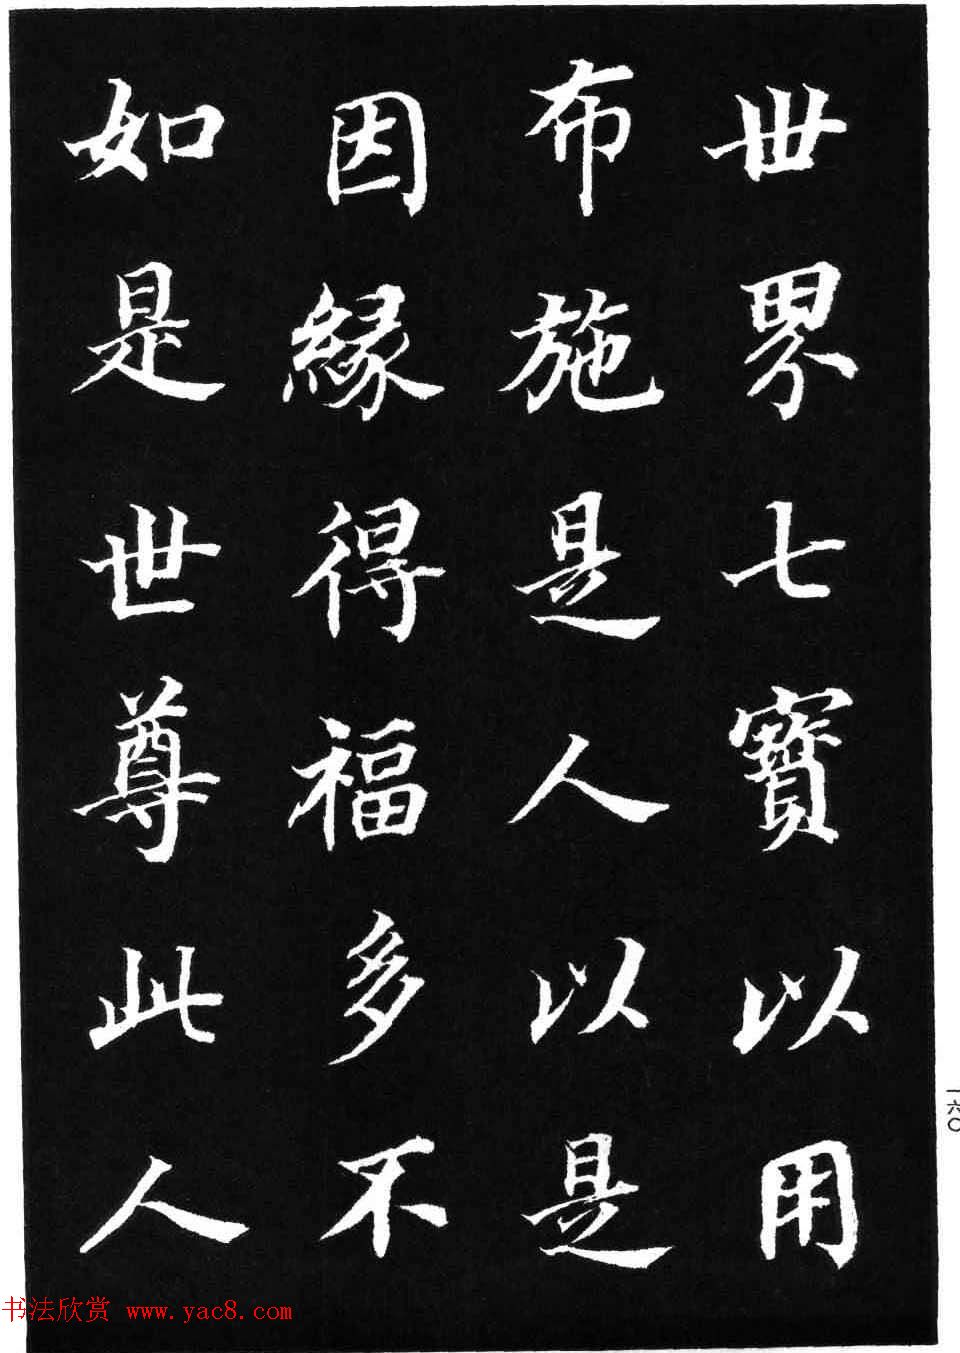 世界七寳以用
布施是人以是
因緣得福多不
如是世尊此人
一六〇
书法欣赏 www.yac8.com